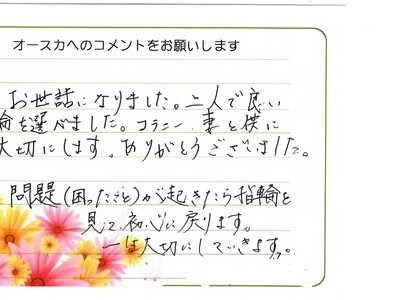 オースカへのコメントをお願いします
お世話になりました。二人で良い
輪を選べました。コラニー、妻と僕に
大切にします。ありがとうございました。
問題(困ったこと)が起きたら指輪を
見て初心に戻ります。
一生大切にしていきます。